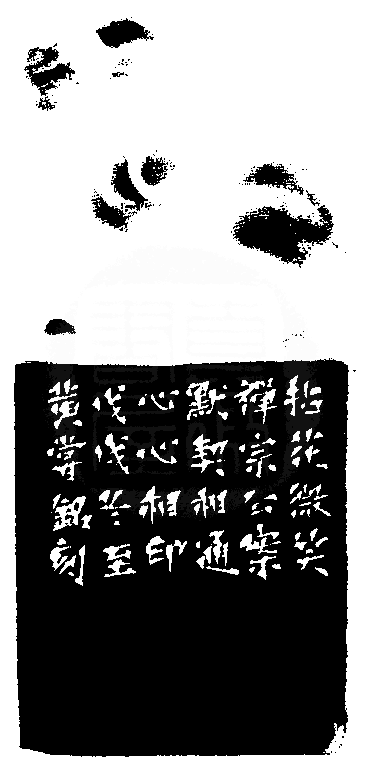 拈花微笑
禪宗公案
默契相通
心心相印
戊戌冬至
黃嘗銘刻